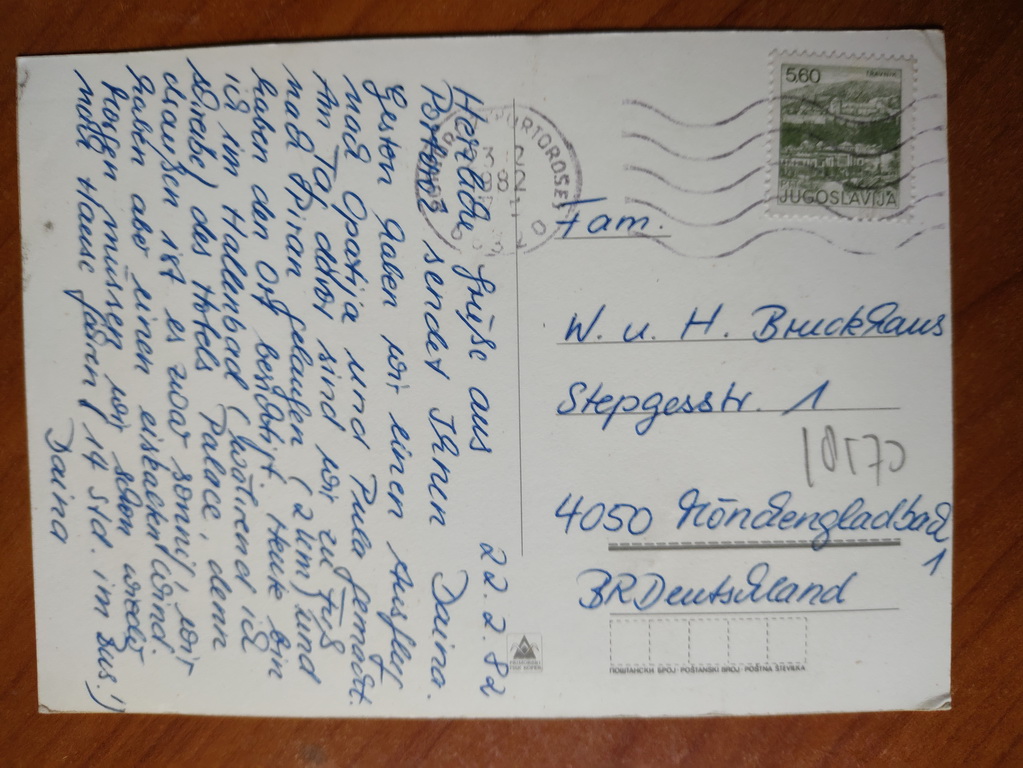 22.2.82
Herzliche Grüße aus
Portorož sendet Ihnen Daina.
Gestern haben wir einen Ausflug
nach Opatija und Pula gemacht.
Am Tag davor sind wir zu Fuß
nach Piran gelaufen (2 km) und
haben den Ort besichtigt. Heute bin
ich im Hallenbad (während ich
schreibe) des Hotels Palace, denn
draußen ist es zwar sonnig, wir
haben aber einen eiskalten Wind.
Morgen müssen wir schon wieder
nach Hause fahren (14 Std. im Bus!)
Daina
PORTOROSE
5.60
TRAVNIK
JUGOSLAVIJA
Fam.
W. u. H. Bruckhaus
Stepgesstr. 1
18170
4050 Mönchengladbach
1
BRDeutschland
ПОШТАНСКИ БРОЈ POŠTANSKI BROJ POŠTNA ŠTEVILKA